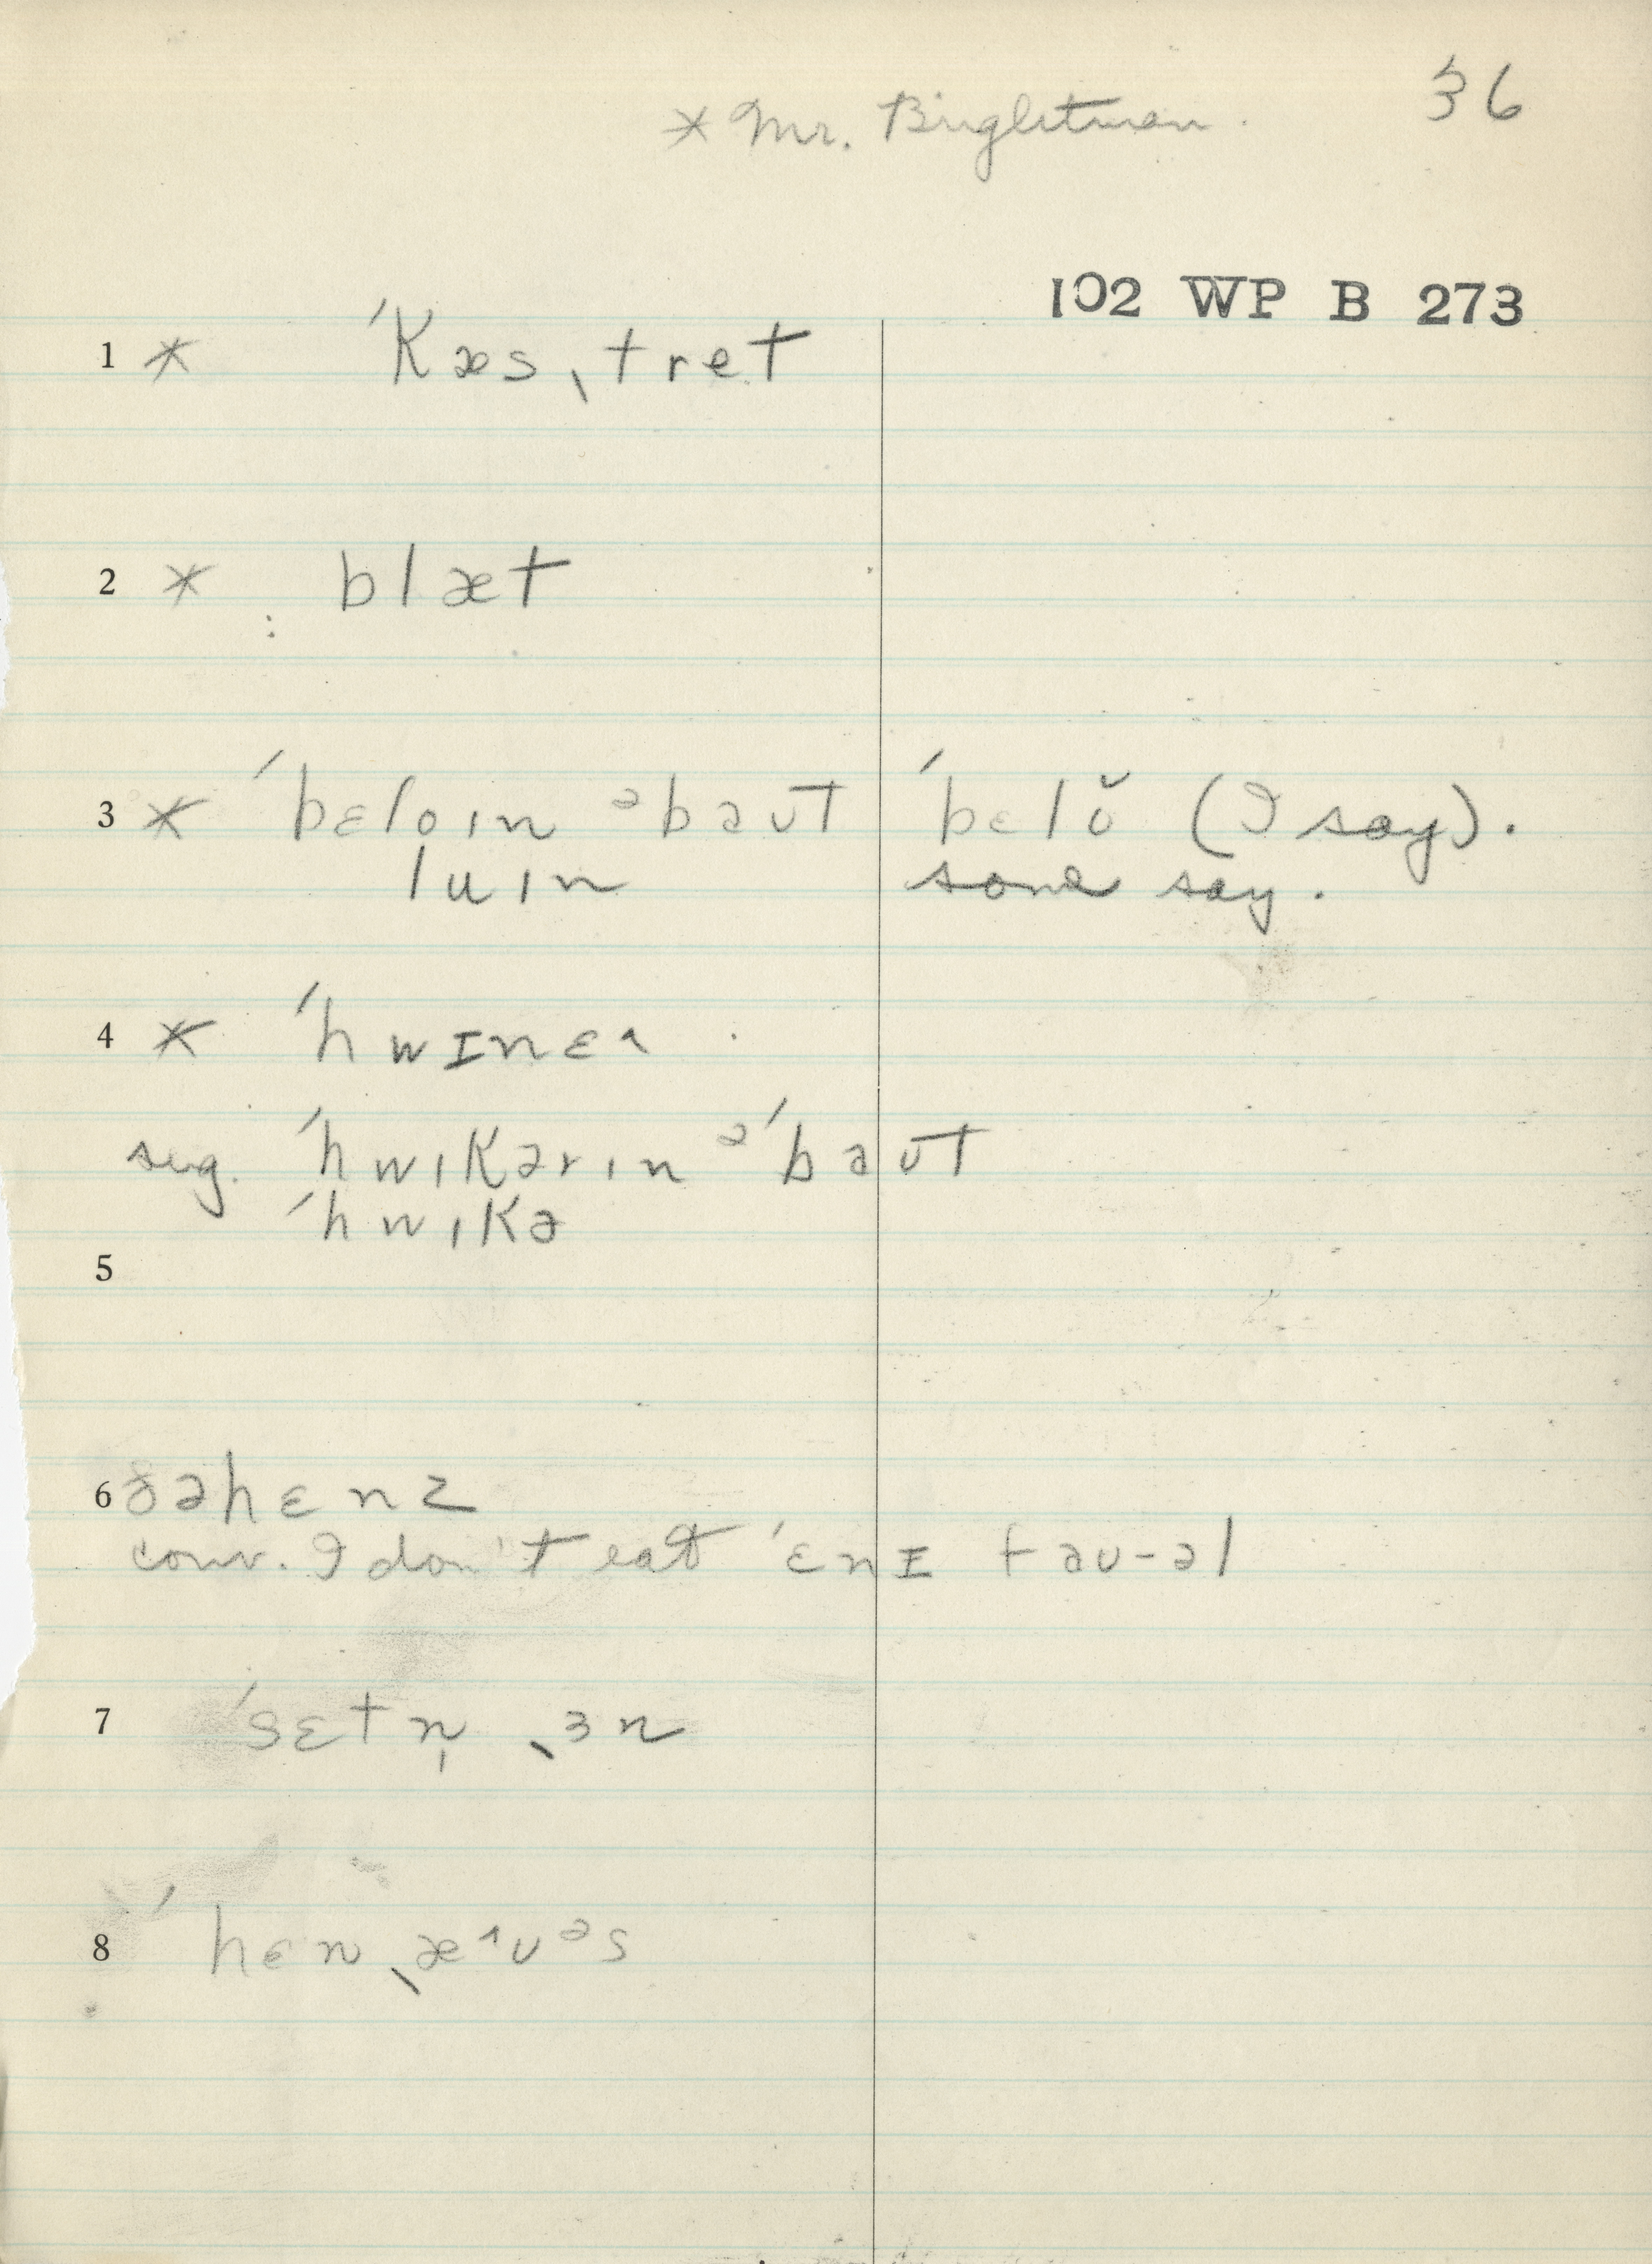 36
* Mr. Brightman.
102 WP B 273
1 * ˈkæsˌtret
2 * blæt
3 * ˈbɛloɪn ᵊbaʊt ˈbɛlŏ (I say).
luɪn some say.
4 * ˈhwɪnɛ^
sug. ˈhwɪkərɪn ᵊˈbaʊt
ˈhwɪkə
5
6 ðəhɛnz
conv. I don't eat ˈɛnɪ faʊ-əl
7 ˈsɛtn̩ ˌɜn
8 ˈhɛnˌæ^ʊᵊs